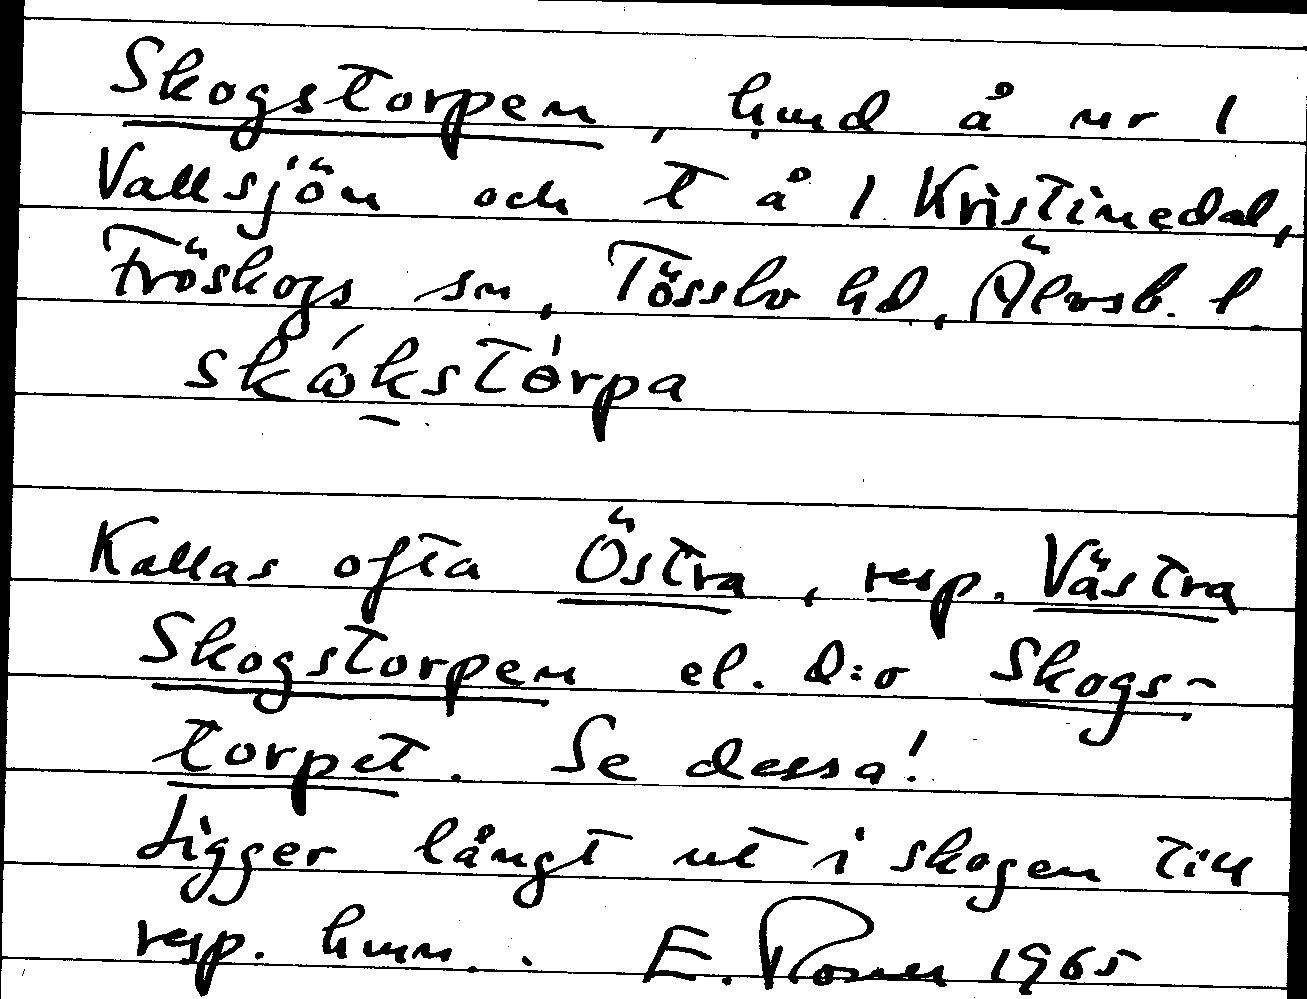 Skogstorpen, hmd å nr 1
Vallsjön och t å 1 Kristinedal,
Fröskogs sn, Tössbo hd, Älvsb. l
skákstórpa
Kallas ofta Östra, resp. Västra
Skogstorpen el. d:o Skogs-
torpet. Se dessa!
Ligger långt ut i skogen till
resp. hmn. E. Rosell 1965